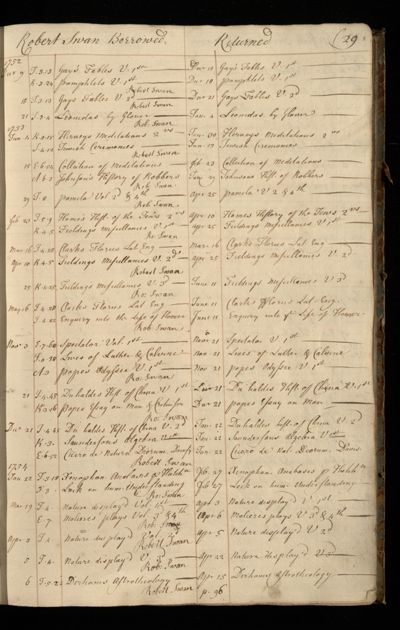 Robert Swan Borrowed Returned (29
1752
Gay's Fables V. 1st Gay's Fables V. 1st
Pamphlets V. 1st Pamphlets V. 1st
Robert Swan
18 Gays Fables V. 2d Gays Fables V. 2d
Robert Swan
21 Leonidas by Glover Leonidas by Glover
Rob. Swan
1753
Herveys Meditations 2 vs Herveys Meditations 2 vs
Jewish Ceremonies Jewish Ceremonies
Robert Swan
Collation of meditations Feb 23 Collation of meditations
Johnson's History of Robbers Johnsons Hist. of Robbers
Rob. Swan
29 Pamela Vol 2d & 4th Apr 25 Pamela V 2 & 4th
Rob. Swan
Feb 20 Homes Hist. of the Jews 2 vs Apr 10 Homes History of the Jews 2 vs
K 4.5 Fieldings miscellanies V. 1st Apr 25 Fieldings miscellanies V. 1st
Ro. Swan
Mar 16 Clarks Florus Lat Eng Clarks Florus Lat Eng
Apr 10 K 4.5 Fieldings Miscellanies V. 2d Apr 25 Fieldings miscellanies V. 2d
Robert Swan
25 K 4.25 Fieldings Miscellanies V 3d June 11 Fieldings miscellanies V 3d
Rob. Swan
May 16 Clarks Florus Lat Eng June 11 Clarks Florus Lat Eng.
Enquiry into the Life of Homer June 11 Enquiry into ye Life of Homer
Rob. Swan
Nov 3 Spectator Vol 1st Nov 21 Spectator V. 1st
Lives of Luther & Calvine Nov 21 Lives of Luther & Calvine
popes Odyssea V. 1st Nov 21 popes Odyssea V. 1st
Ro. Swan
21 Duhaldes Hist. of China V. 1st Dec 21 Du haldes Hist. of China V. 1st
popes Essay on Man Dec 21 popes Essay on Man
Ro Swan
Dec 21 Du haldes Hist. of China V. 2d Jan 22 Duhaldes Hist. of China V. 2d
K.3. Saundersons Algebra Jan 22 Saundersons Algebra
Cicero de Natura Deorum Jan 22 Cicero de Nat. Deorum
Robert Swan
1754
Jan 22 Xenophon Anabasis Feb. 27 Xenophon Anabasis
F.3. Lock on hum. Understanding Feb 27 Lock on hum. Understanding
Ro. Swan
Mar 19 F.4. Nature displayd Vol. 1st Apr 3 Nature display'd V. 1st
E.7. Molieres plays Vol. 3 & 4th Apr 6 Molieres plays V 3d & 4th
Rob. Swan
Apr 3 F.4. Nature displayd Vol 2d Apr 5 Nature displayd V 2d
Robert Swan
5 F.4. Nature displayd V. 3 Apr 22 Nature display'd V 3
Rob. Swan
6 Derhams Astrotheology Apr 15 Derhams Astrotheology.
Robert Swan p. 96